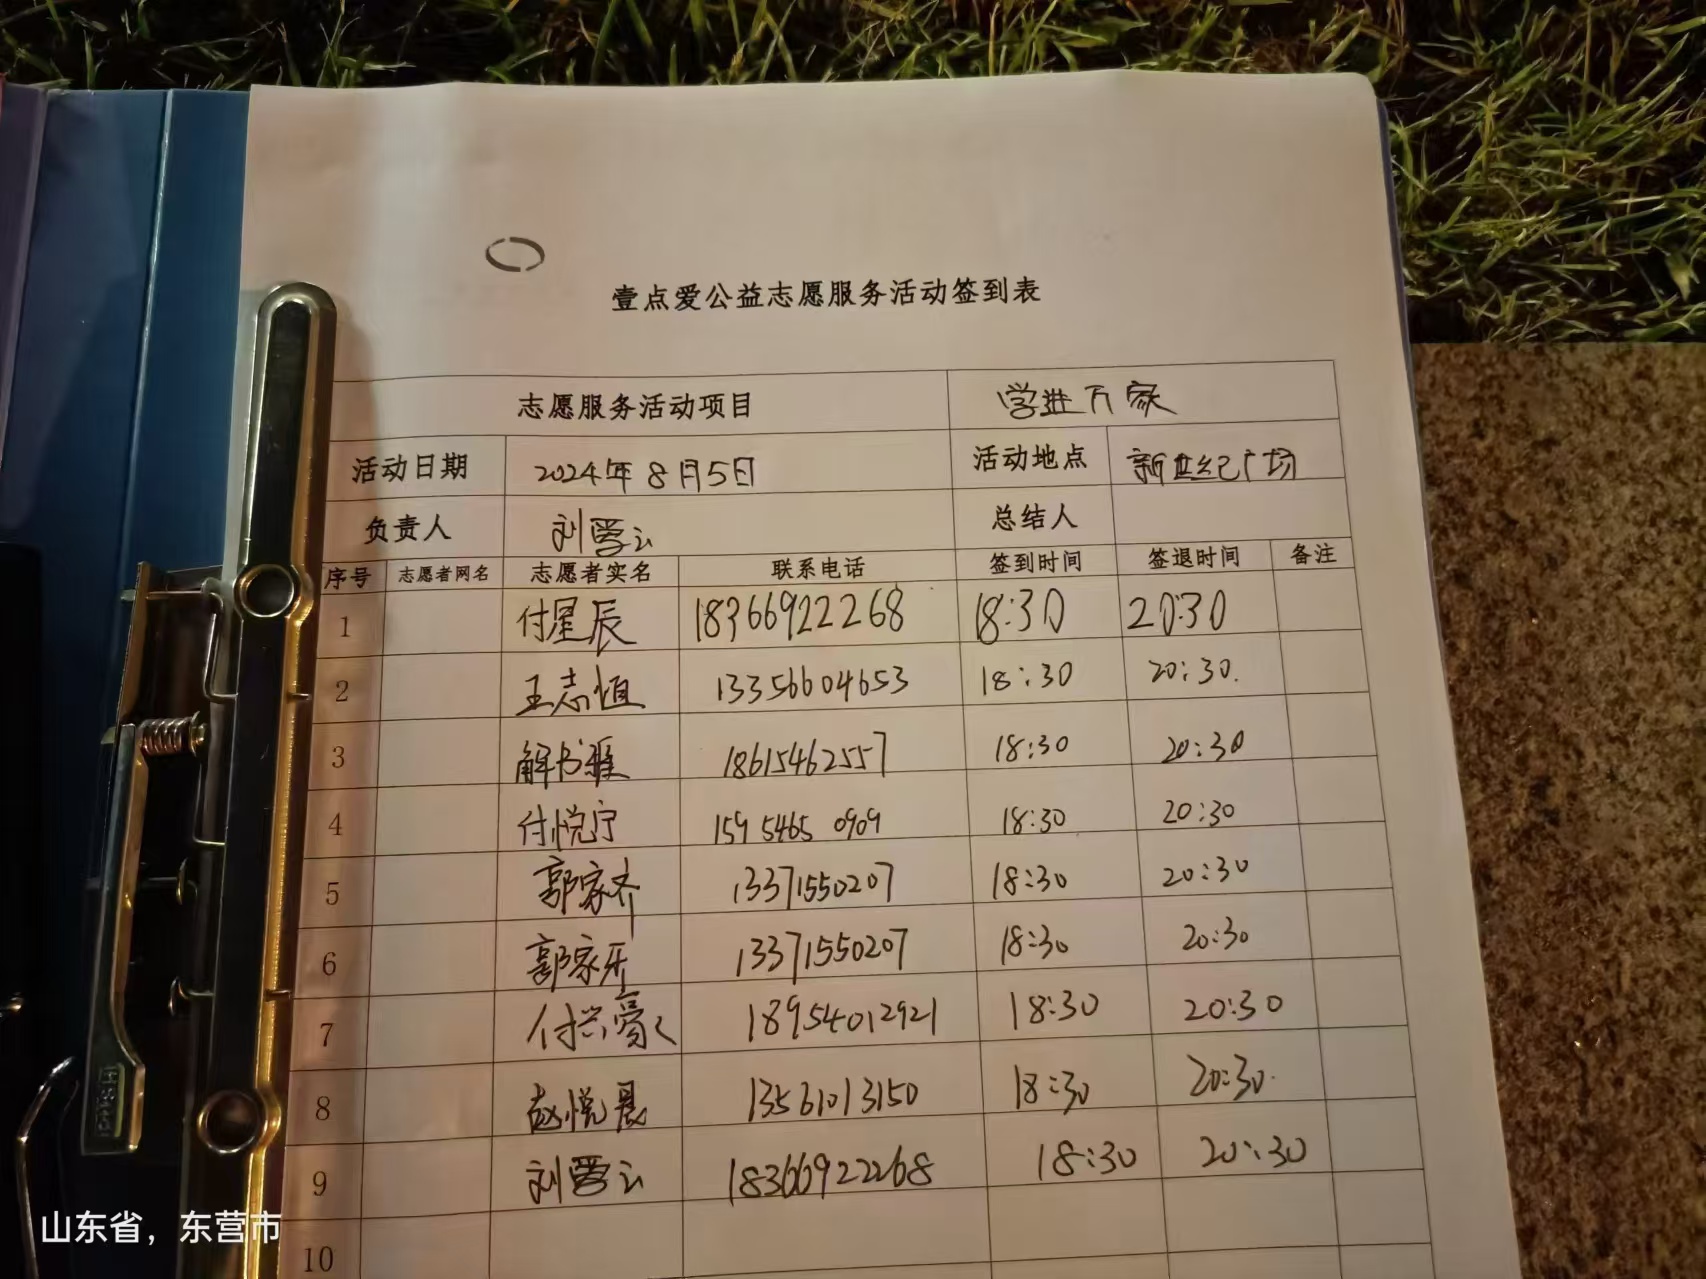 壹点爱公益志愿服务活动签到表
志愿服务活动项目 学进万家
活动日期 2024年8月5日 活动地点 新世纪广场
负责人 刘雪云 总结人
序号 志愿者网名 志愿者实名 联系电话 签到时间 签退时间 备注
1 付星辰 18366922268 18:30 20:30
2 王志恒 13356604653 18:30 20:30.
3 解书雅 18615462557 18:30 20:30
4 付悦宁 159 5465 0909 18:30 20:30
5 郭家齐 13371550207 18:30 20:30
6 郭家乐 13371550207 18:30 20:30
7 付兴 18954012921 18:30 20:30
8 赵悦晨 13561013150 18:30 20:30.
9 刘雪云 18366922268 18:30 20:30
10
山东省，东营市